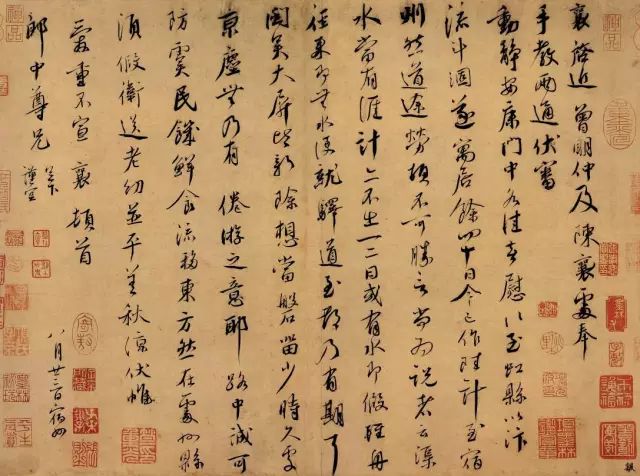 襄啓近曾明仲及陳襄處奉
手教兩通伏審
動靜安康門中各佳喜慰〻至虹縣以汴
流斗涸遂寓居餘四十日今已作陸計至宿
州然道途勞頓不可勝言尚為說者云渠
水當有涯計亦不出一二日或有水即假輕舟
徑來即無水便就驛道至都乃有期耳
聞吳大屏皆新除想當磐留少時久處
京塵無乃有倦游之意耶路中誠可
防虞民饑鮮食流移東方然在處州縣
須假衛送老幼並平善秋涼伏惟
愛重不宣襄頓首
郎中尊兄
足下
謹空
八月廿三日宿州